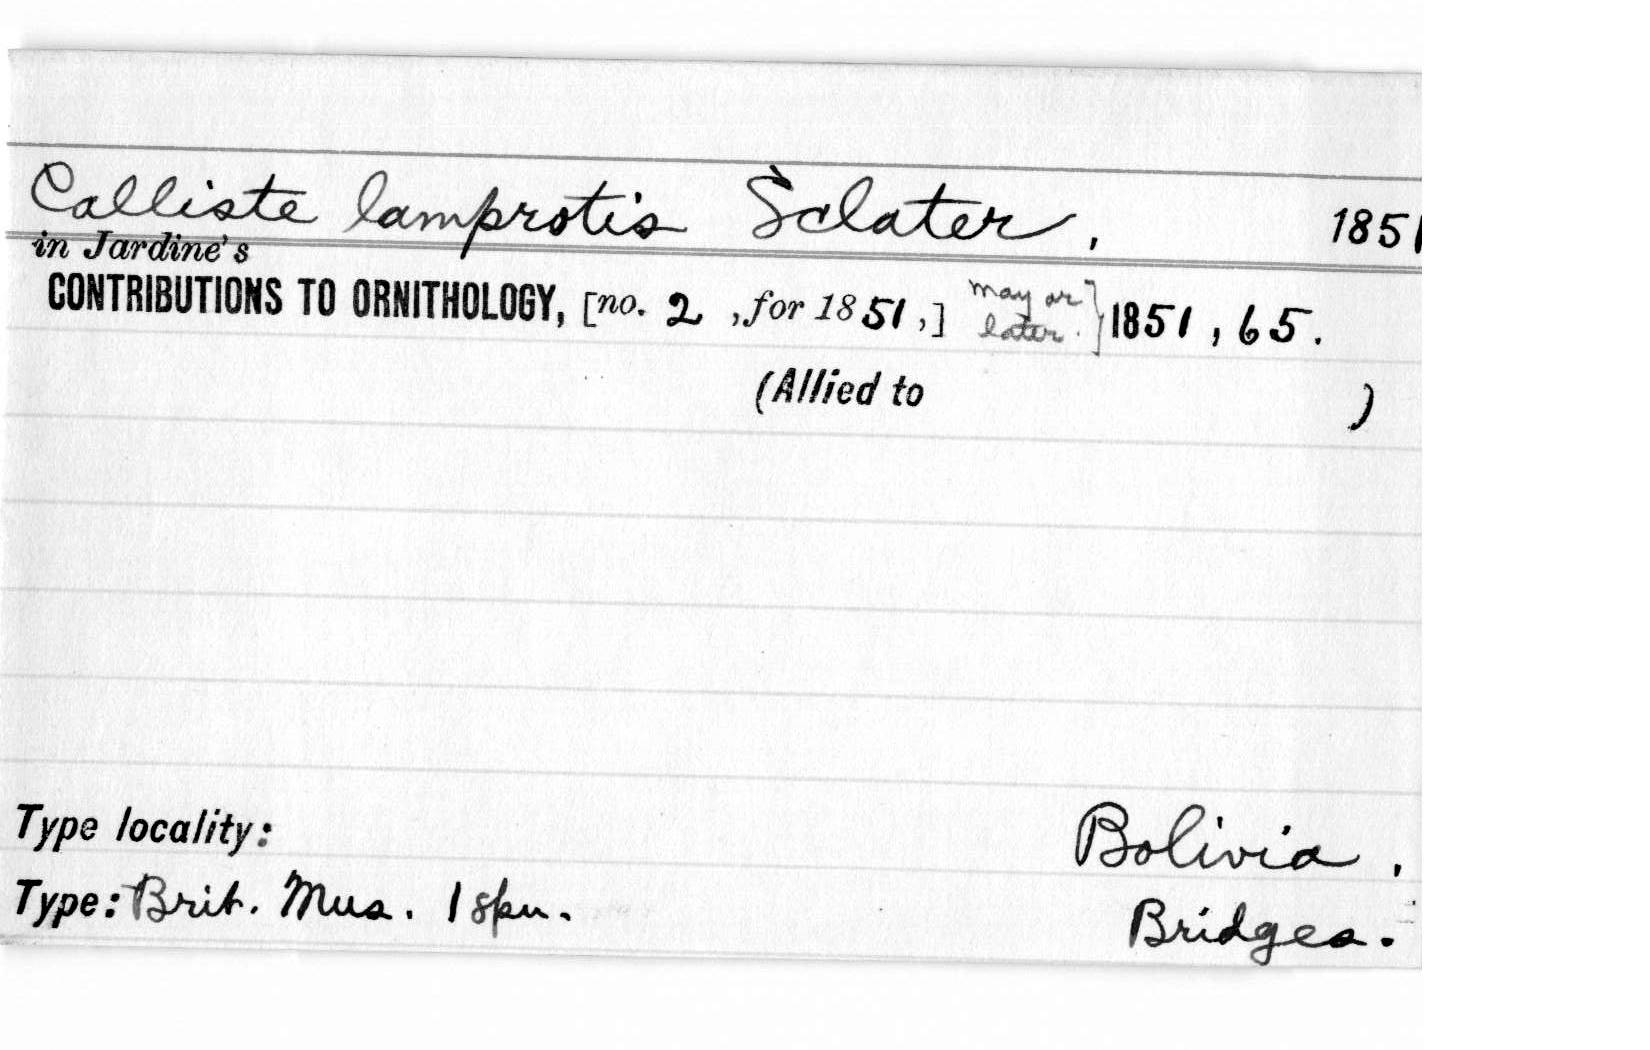 Calliste lamprotis Sclater, 1851
in Jardine's
CONTRIBUTIONS TO ORNITHOLOGY, [no. 2 , for 1851,] may or later. } 1851, 65.
(Allied to )
Type locality: Bolivia,
Type: Brit. Mus. 1 spm. Bridges.